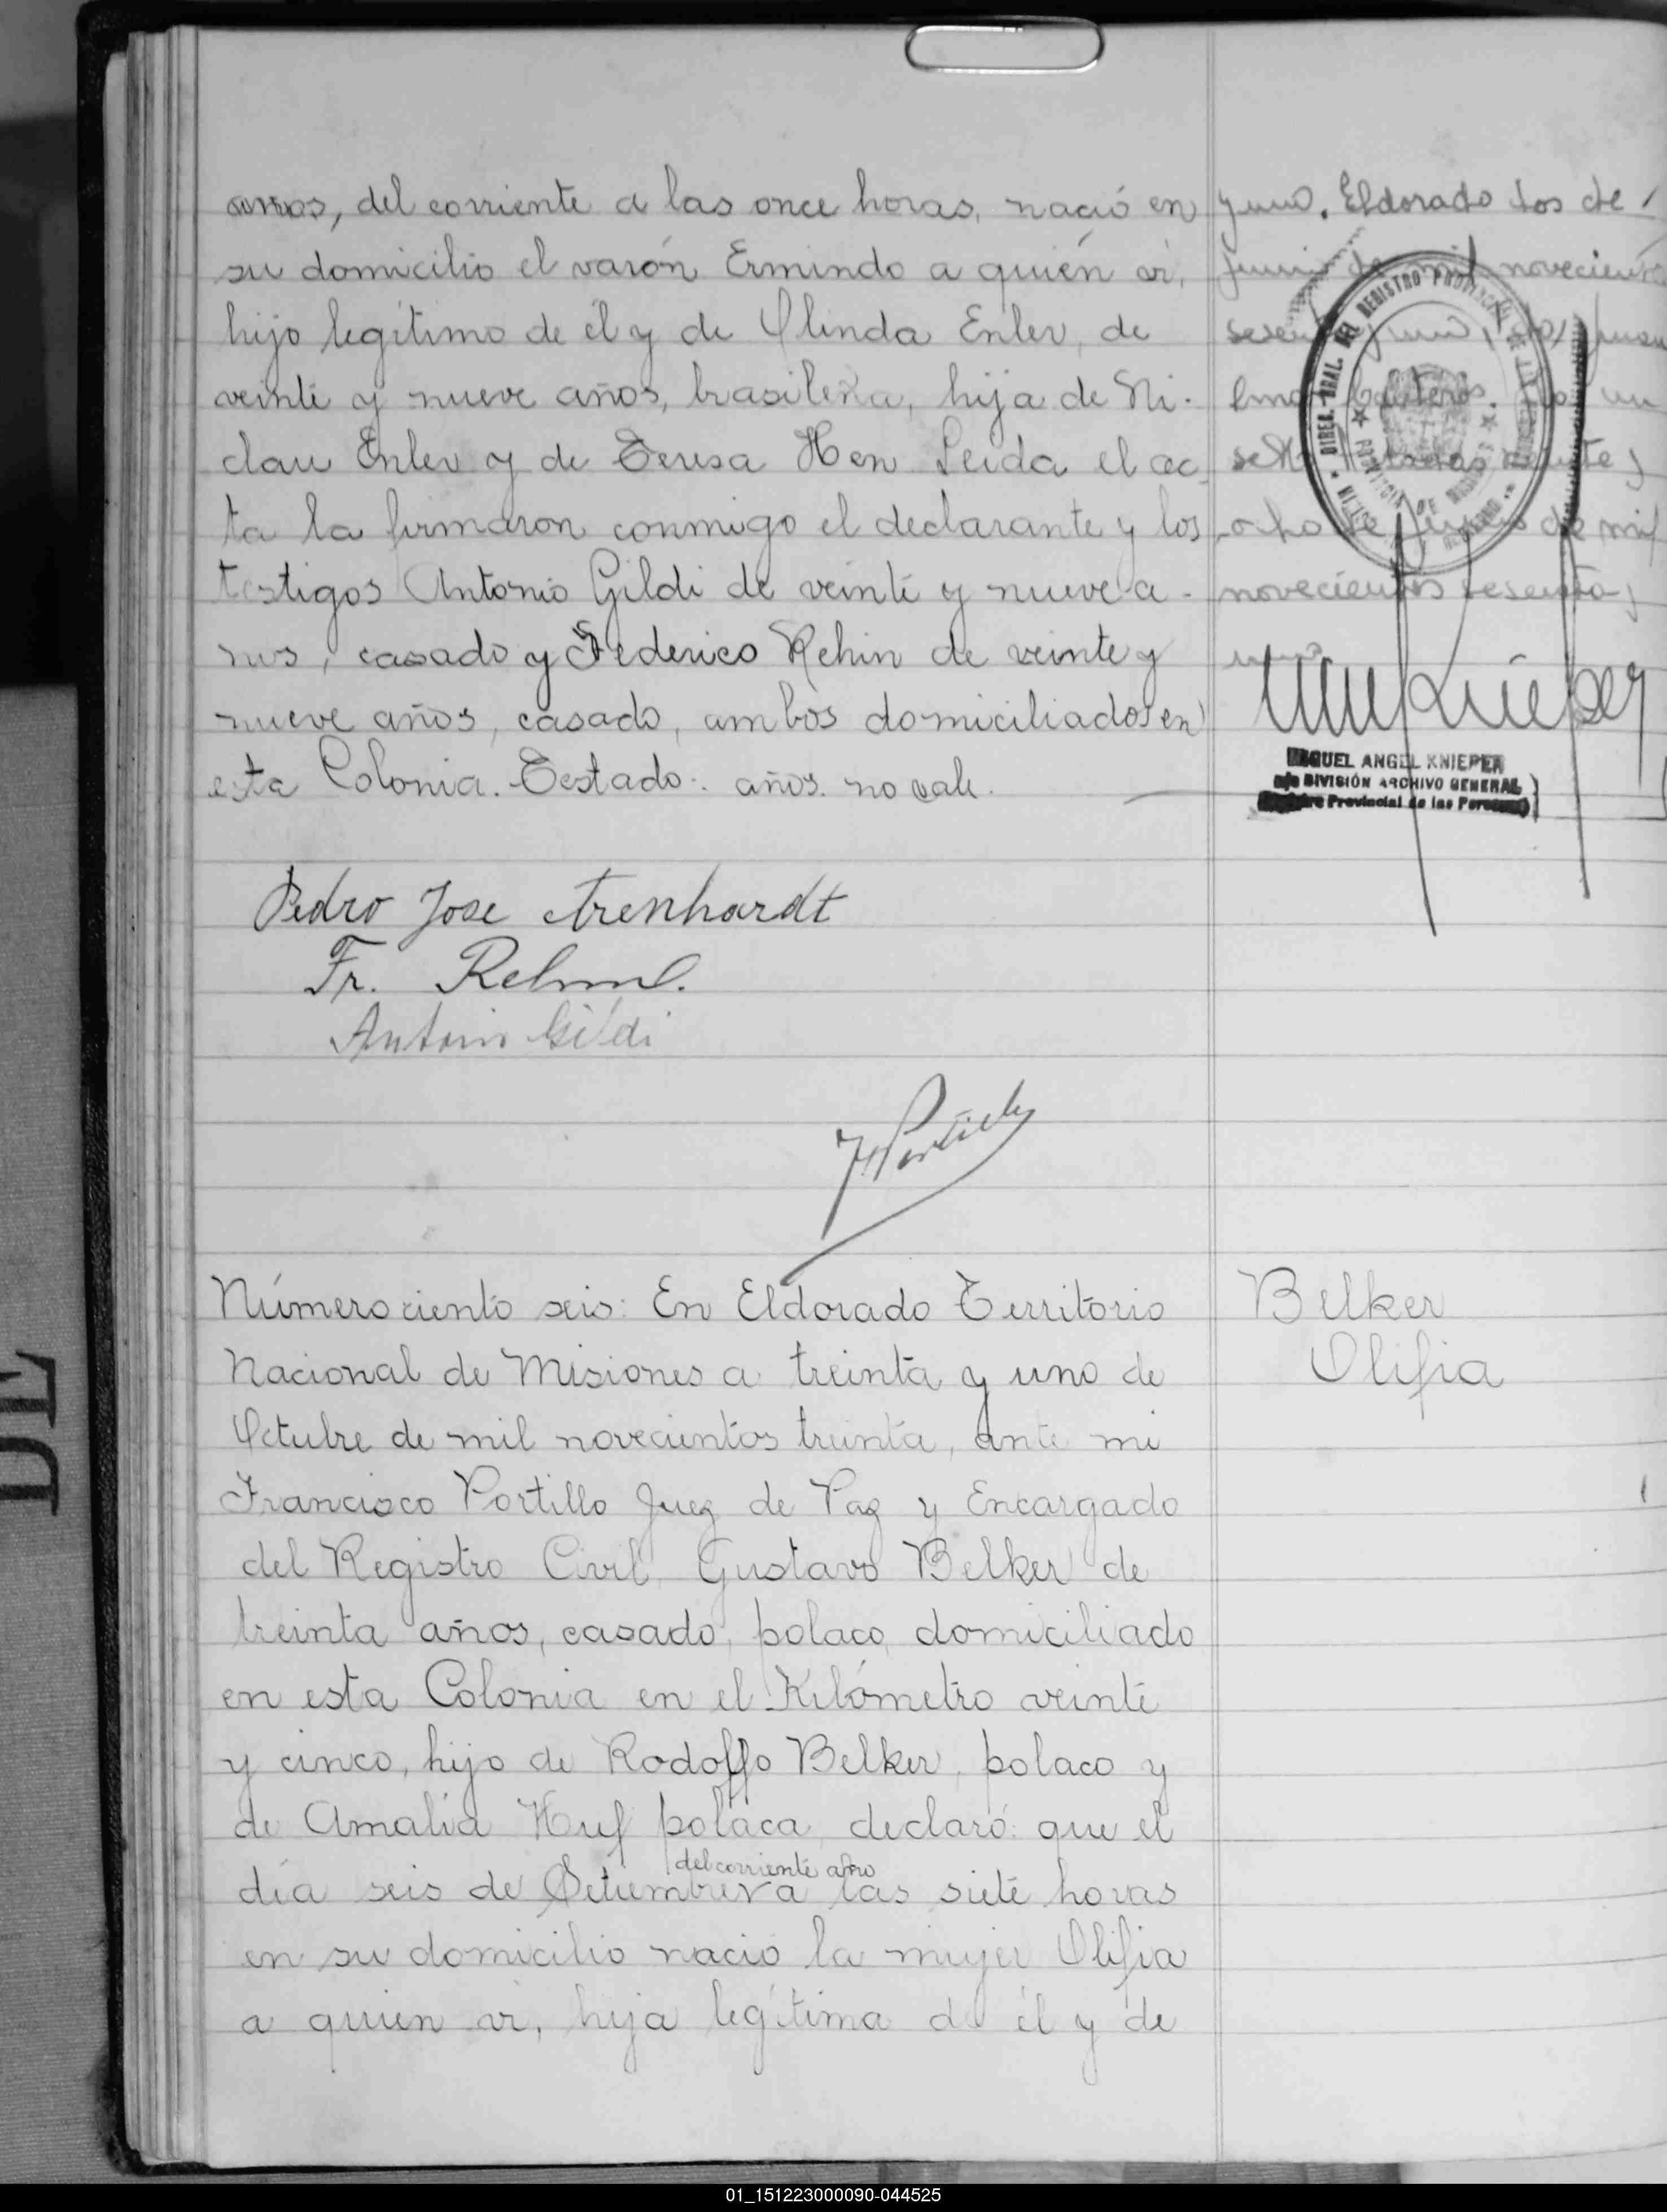 del corriente a las once horas, nació en
su domicilio el varón Ermindo a quién vi,
hijo legítimo de él y de Olinda Enler, de
veinte y nueve años, brasileña, hija de Ni-
clau Enler y de Teresa Hen. Leida el ac-
ta la firmaron conmigo el declarante y los
testigos Antonio Gildi de veinte y nueve a-
ños, casado y Federico Rehin de veinte y
nueve años, casado, ambos domiciliados en
esta Colonia. Testado: años. no vale.
Pedro Jose Arenhardt
Fr.
Antonio Gildi
Número ciento seis: En Eldorado Territorio
Nacional de Misiones a treinta y uno de
Octubre de mil novecientos treinta, ante mi
Francisco Portillo Juez de Paz y Encargado
del Registro Civil, Gustavo Belker de
treinta años, casado, polaco, domiciliado
en esta Colonia en el Kilómetro veinte
y cinco, hijo de Rodolfo Belker, polaco y
de Amalia Huf polaca, declaró: que el
del corriente año
día seis de Setiembre a las siete horas
en su domicilio nació la mujer Olifia
a quien vi, hija legítima de él y de
y uno. Eldorado dos de
novecientos
de mil
novecientos sesenta y
uno
MIGUEL ANGEL KNIEPER
DIVISIÓN ARCHIVO GENERAL
Provincial de las Personas
Belker
Olifia
DE
01_151223000090-044525